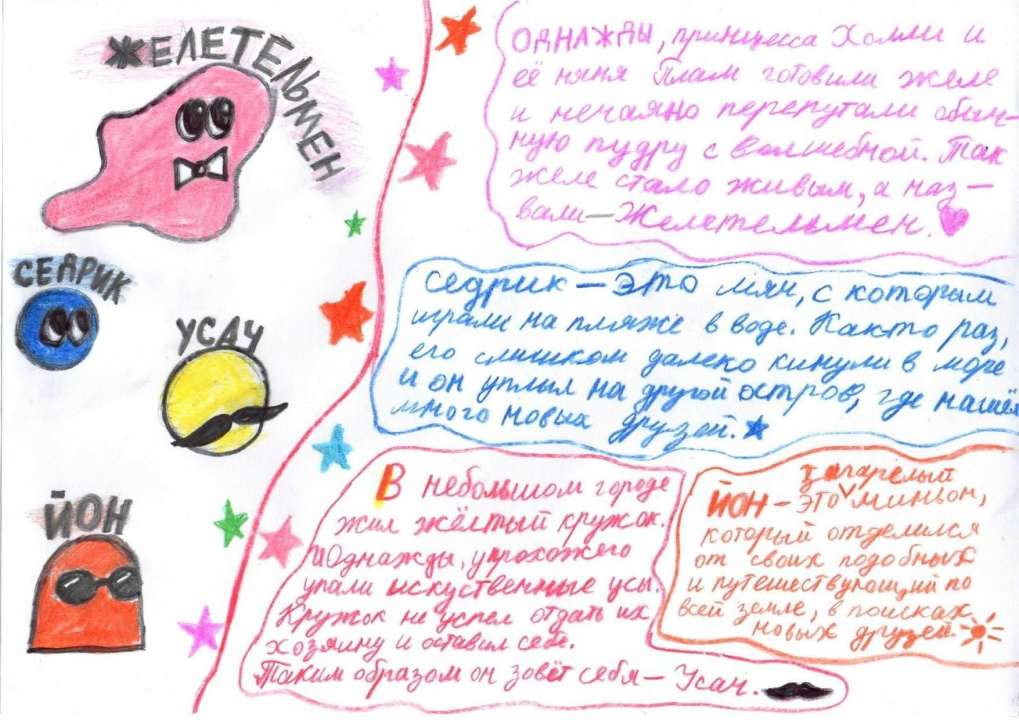 ЖЕЛЕТЕЛЬМЕН
ОДНАЖДЫ, принцесса Холли и
её няня Плам готовили желе
и нечаяно перепутали обыч-
ную пудру с волшебной. Так
желе стало живым, а наз-
вали—Желетельмен.
СЕДРИК
Седрик — это мяч, с которым
играли на пляже в воде. Както раз,
его слишком далеко кинули в море
и он уплыл на другой остров, где нашёл
много новых друзей.
УСАЧ
В небольшом городе
жил жёлтый кружок.
Однажды, у прохожего
упали искуственные усы.
Кружок не успел отдать их
хозяину и оставил себе.
Таким образом он зовёт себя — Усач.
ЙОН
загарелый
ЙОН — это миньон,
который отделился
от своих подобных
и путешествующий по
всей земле, в поисках
новых друзей.